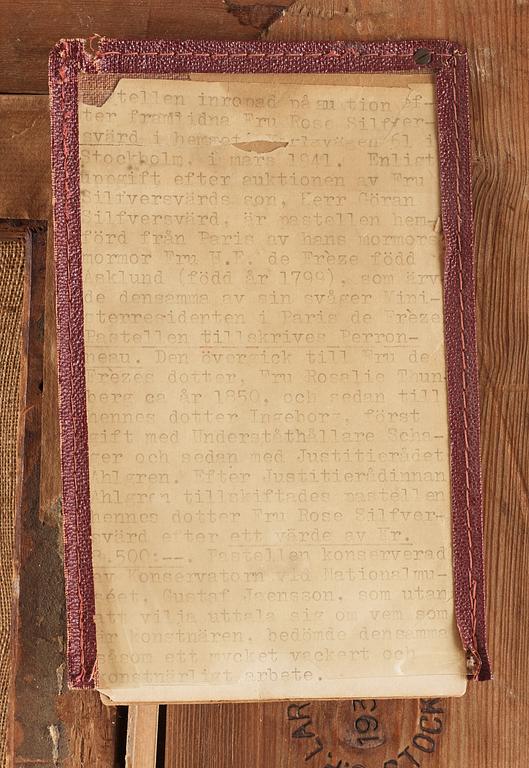 tellen inropad på auktion ef-
ter framlidna Fru Rose Silfver-
svärd i hemmet Karlavägen 61 i
Stockholm, i mars 1941. Enligt
uppgift efter auktionen av Fru
Silfversvärds son, Herr Göran
Silfversvärd, är pastellen hem-
förd från Paris av hans mormors
mormor Fru H.E. de Frèze född
Asklund (född år 1799), som ärv
de densamma av sin svåger Mini-
sterresidenten i Paris de Frèze
Pastellen tillskrives Perron-
neau. Den övergick till Fru de
Frèzes dotter, Fru Rosalie Thun
berg ca år 1850, och sedan till
hennes dotter Ingeborg, först
gift med Underståthållare Scha-
ger och sedan med Justitierådet
Ahlgren. Efter Justitierådinnan
Ahlgren tillskiftades pastellen
hennes dotter Fru Rose Silfver-
svärd efter ett värde av Kr.
.500:--. Pastellen konserverad
av Konservatorn vid Nationalmu-
séet, Gustaf Jaensson, som utan
att vilja uttala sig om vem som
är konstnären, bedömde densamma
såsom ett mycket vackert och
konstnärligt arbete.
LAR
193
STOCK